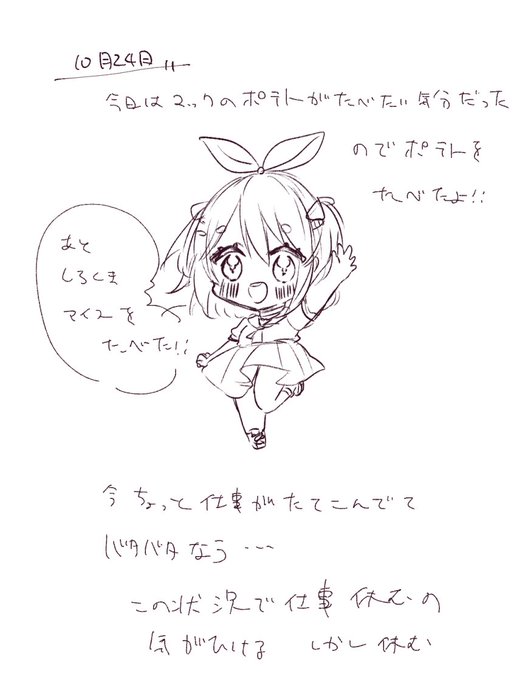 10月24日
今日はマックのポテトがたべたい気分だった
のでポテトを
たべたよ!!
あと
しろくま
アイスを
たべた!!
今ちょっと仕事がたてこんでて
バタバタなう…
この状況で仕事休むの
気がひける しかし休む